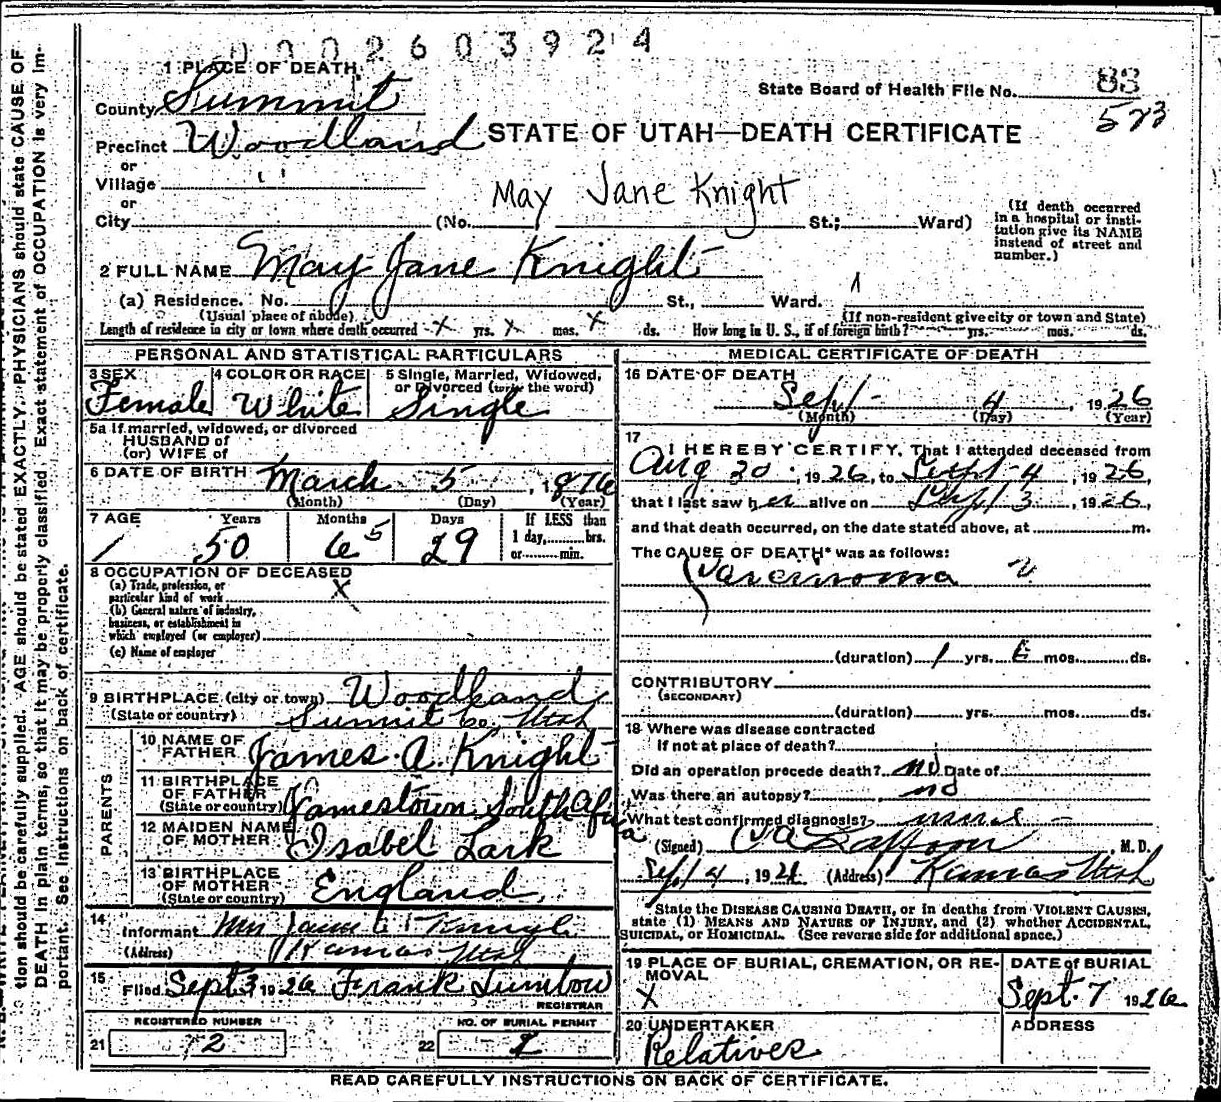 0002603924
1 PLACE OF DEATH
County Summit
State Board of Health File No. 83
523
Precinct Woodland
STATE OF UTAH—DEATH CERTIFICATE
or
Village " 
or
May Jane Knight
City (No. St.; Ward)
(If death occurred in a hospital or institution give its NAME instead of street and number.)
2 FULL NAME May Jane Knight
(a) Residence. No. St., Ward.
(Usual place of abode) (If non-resident give city or town and State)
Length of residence in city or town where death occurred x yrs. x mos. x ds. How long in U. S., if of foreign birth? yrs. mos. ds.
PERSONAL AND STATISTICAL PARTICULARS
3 SEX 4 COLOR OR RACE 5 Single, Married, Widowed, or Divorced (write the word)
Female White Single
5a If married, widowed, or divorced
HUSBAND of
(or) WIFE of
6 DATE OF BIRTH March 5, 1876
(Month) (Day) (Year)
7 AGE Years Months Days If LESS than
1 day, hrs.
or min.
50 6 5 29
8 OCCUPATION OF DECEASED
(a) Trade, profession, or
particular kind of work X
(b) General nature of industry,
business, or establishment in
which employed (or employer)
(c) Name of employer
9 BIRTHPLACE (city or town) Woodland
(State or country) Summit Co. Utah
PARENTS
10 NAME OF FATHER James A. Knight
11 BIRTHPLACE OF FATHER
(State or country) Jamestown South Africa
12 MAIDEN NAME OF MOTHER Isabel Lark
13 BIRTHPLACE OF MOTHER
(State or country) England
14 Informant Knight
(Address) Kamas Utah
15 Filed Sept 3 1926 Frank
REGISTRAR
REGISTERED NUMBER NO. OF BURIAL PERMIT
21 2 22 2
MEDICAL CERTIFICATE OF DEATH
16 DATE OF DEATH
Sept 4, 1926
(Month) (Day) (Year)
17
I HEREBY CERTIFY, That I attended deceased from
Aug 30, 1926, to Sept 4, 1926,
that I last saw her alive on Sept 3, 1926,
and that death occurred, on the date stated above, at m.
The CAUSE OF DEATH* was as follows:
Carcinoma
(duration) 1 yrs. 6 mos. ds.
CONTRIBUTORY
(SECONDARY)
(duration) yrs. mos. ds.
18 Where was disease contracted
if not at place of death?
Did an operation precede death? no Date of
Was there an autopsy? no
What test confirmed diagnosis?
(Signed) M. D.
Sept 4, 1926 (Address) Kamas Utah
State the DISEASE CAUSING DEATH, or in deaths from VIOLENT CAUSES,
state (1) MEANS AND NATURE OF INJURY, and (2) whether ACCIDENTAL,
SUICIDAL, or HOMICIDAL. (See reverse side for additional space.)
19 PLACE OF BURIAL, CREMATION, OR REMOVAL DATE of BURIAL
X Sept. 7 1926
20 UNDERTAKER ADDRESS
Relatives
READ CAREFULLY INSTRUCTIONS ON BACK OF CERTIFICATE.
tion should be carefully supplied. AGE should be stated EXACTLY. PHYSICIANS should state CAUSE OF
DEATH in plain terms, so that it may be properly classified. Exact statement of OCCUPATION is very important. See instructions on back of certificate.